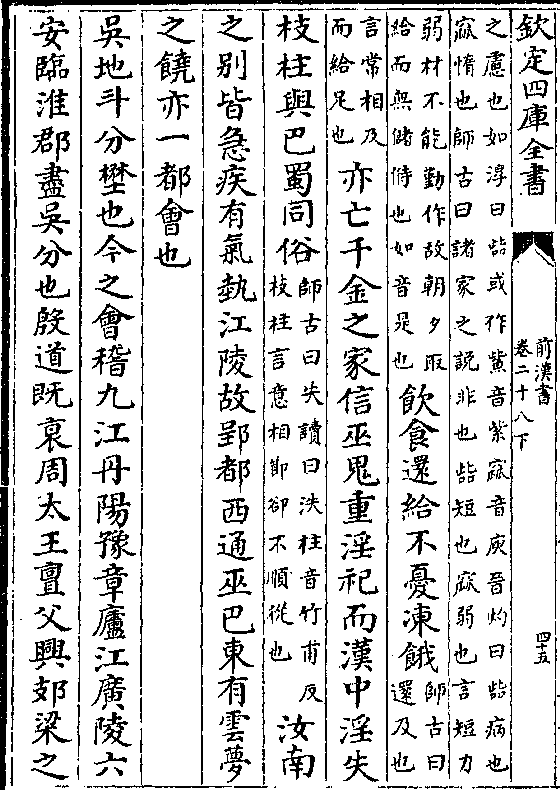 欽定四庫全書
前漢書
卷二十八下
四十五
之慮也如淳曰呰或作鮆音紫窳音庾晉灼曰呰病也
窳惰也師古曰諸家之説非也呰短也窳弱也言短力
弱材不能勤作故朝夕取
給而無儲偫也如音是也
飲食還給不憂凍餓
師古曰
還及也
言常相及
而給足也
亦亡千金之家信巫鬼重淫祀而漢中淫失
枝柱與巴蜀同俗
師古曰失讀曰泆柱音竹甫反
枝柱言意相節卻不順從也
汝南
之别皆急疾有氣埶江陵故郢都西通巫巴東有雲夢
之饒亦一都會也
吳地斗分壄也今之會稽九江丹陽豫章廬江廣陵六
安臨淮郡盡吳分也殷道既衰周太王亶父興郂梁之